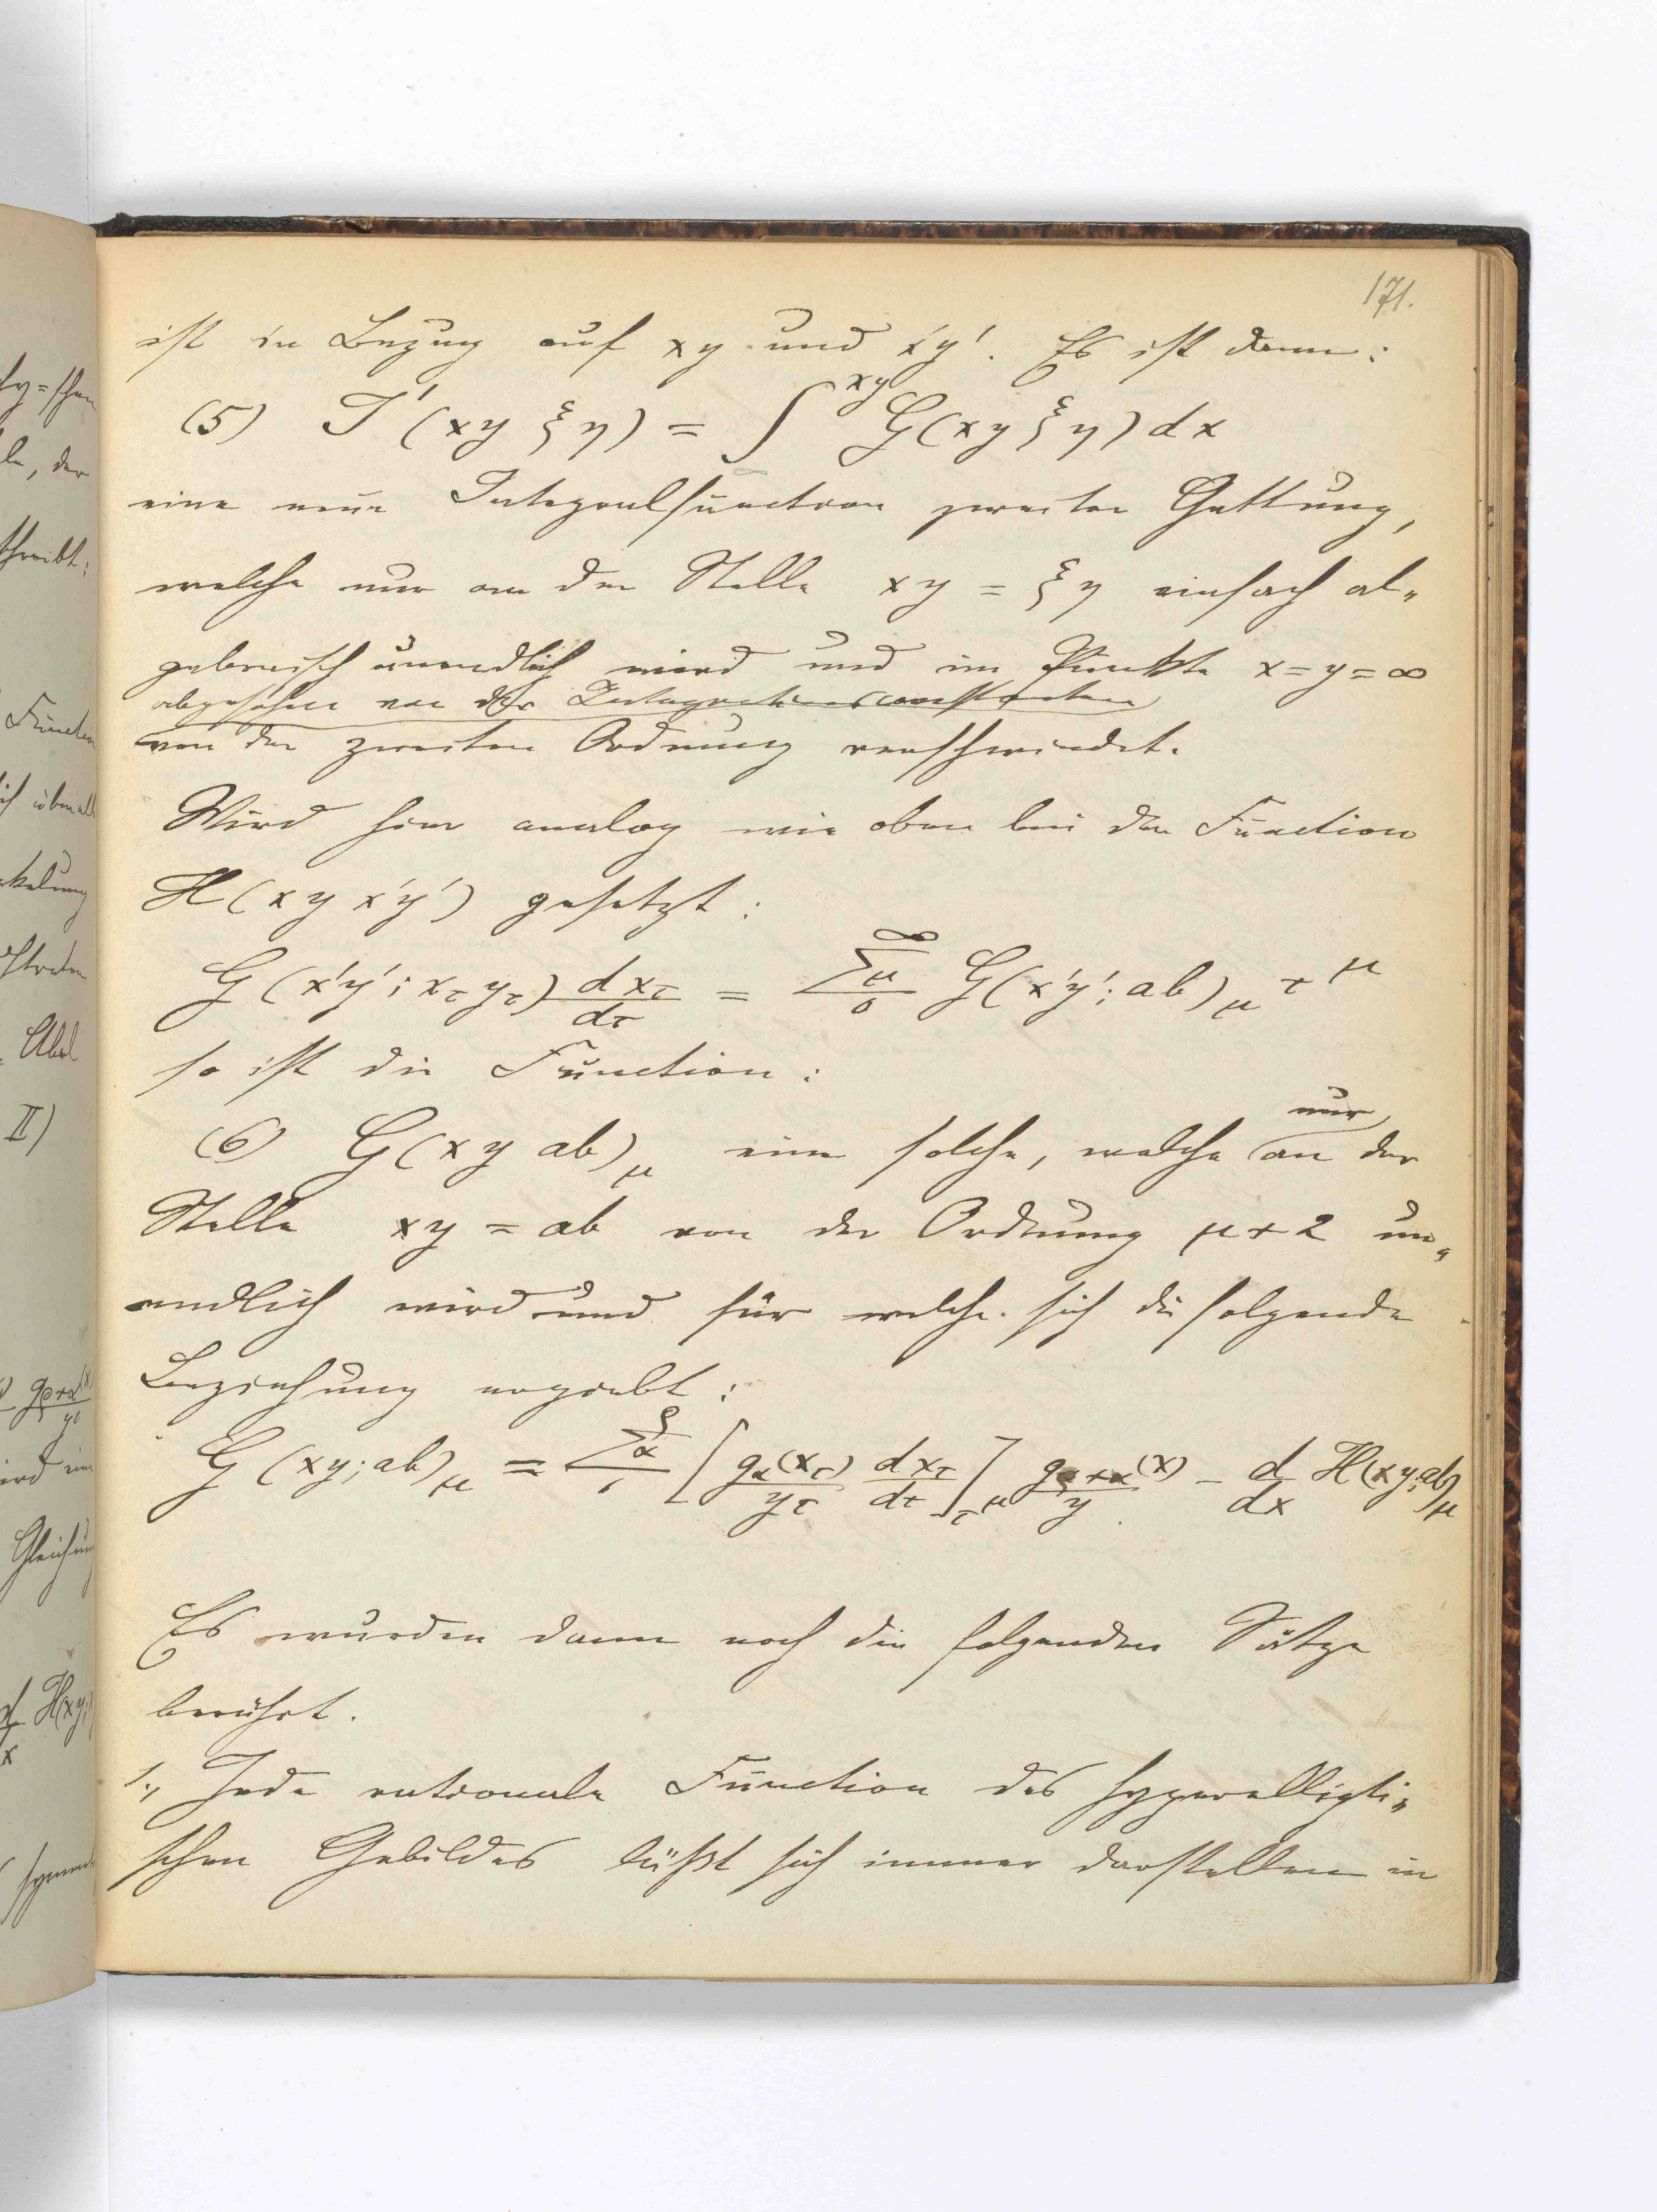 171.
ist in Bezug auf xy und x'y'. Es ist dann:
(5) J'(xy ξη) = ∫^{xy} G(xy ξη) dx
eine neue Integralfunction zweiter Gattung,
welche nur an der Stelle xy = ξη einfach al„
gebraisch unendlich wird und im Punkte x=y=∞
abgesehen von der Integrationsconstanten
von der zweiten Ordnung verschwindet.
Wird hier analog wie oben bei der Function
H(xy x'y') gesetzt:
G(x'y'; x_τ y_τ) dx_τ/dτ = Σμ_0^∞ G(x'y'; ab)_μ τ^μ
so ist die Function:
nur
(6) G(xy ab)_μ eine solche, welche an der
Stelle xy = ab von der Ordnung μ+2 un„
endlich wird und für welche sich die folgende
Beziehung ergiebt:
G(xy; ab)_μ = Σα_1^ρ [g_α(x_τ)/y_τ dx_τ/dτ]_{τ^μ} g_{ρ+α}(x)/y − d/dx H(xy; ab)_μ
Es wurden dann noch die folgenden Sätze
berührt.
1., Jede rationale Function des hyperellipti„
schen Gebildes läßt sich immer darstellen in